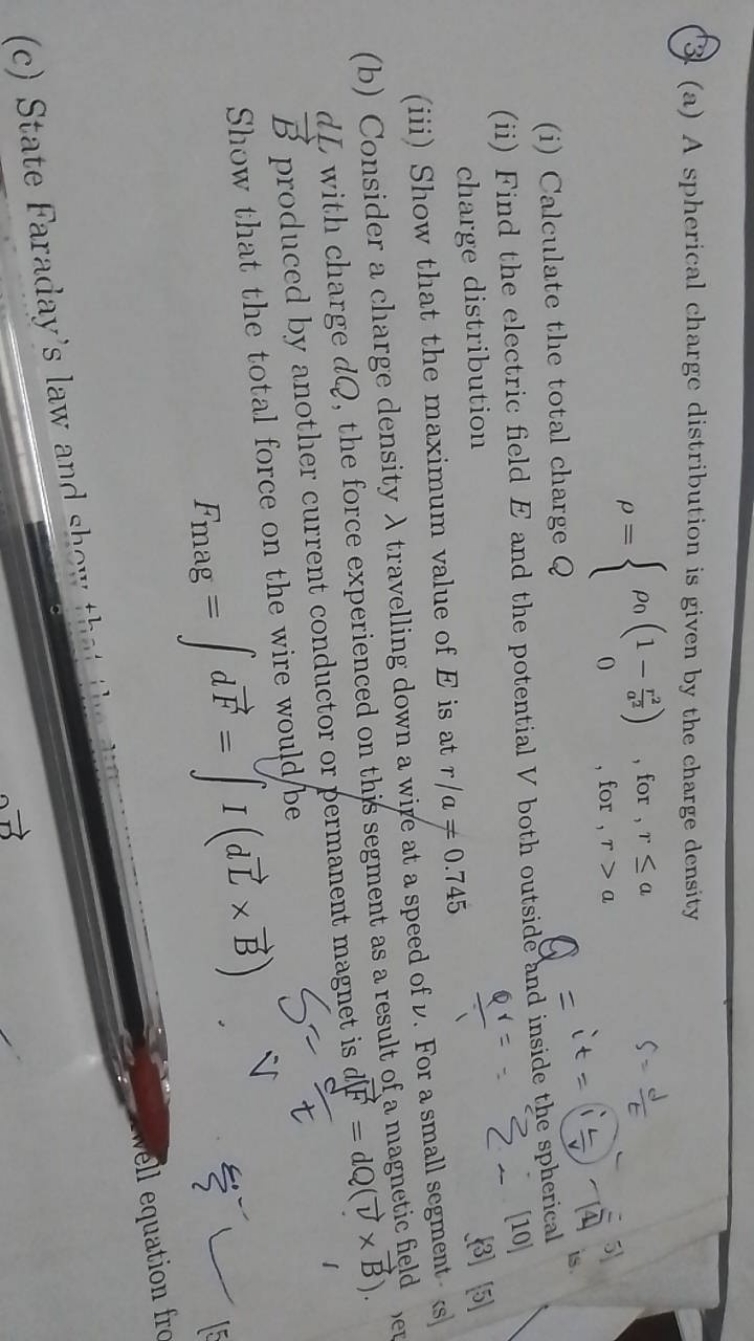 3 (a) A spherical charge distribution is given by the charge density
ρ = { ρ₀(1 − r²/a²) , for , r ≤ a
0 , for , r > a
(i) Calculate the total charge Q [4]
(ii) Find the electric field E and the potential V both outside and inside the spherical
charge distribution [10]
(iii) Show that the maximum value of E is at r/a = 0.745 [3] [5]
(b) Consider a charge density λ travelling down a wire at a speed of ν. For a small segment
dL with charge dQ, the force experienced on this segment as a result of a magnetic field
B⃗ produced by another current conductor or permanent magnet is dF⃗ = dQ(ν⃗ × B⃗).
Show that the total force on the wire would be
Fmag = ∫ dF⃗ = ∫ I (dL⃗ × B⃗)
(c) State Faraday's law and show that the
well equation fro
Q = it = i L/v
S = d/t
S = d/t